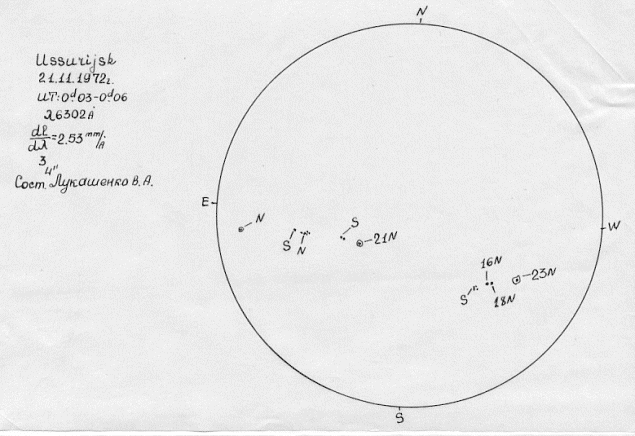 Ussurijsk
21.11.1972г.
UT:0ᵈ03-0ᵈ06
λ6302Å
dl/dλ=2.53 mm/Å
3
4"
Сост. Лукашенко В.А.
N
E
W
S
N
S
N
S
21N
16N
S
18N
23N